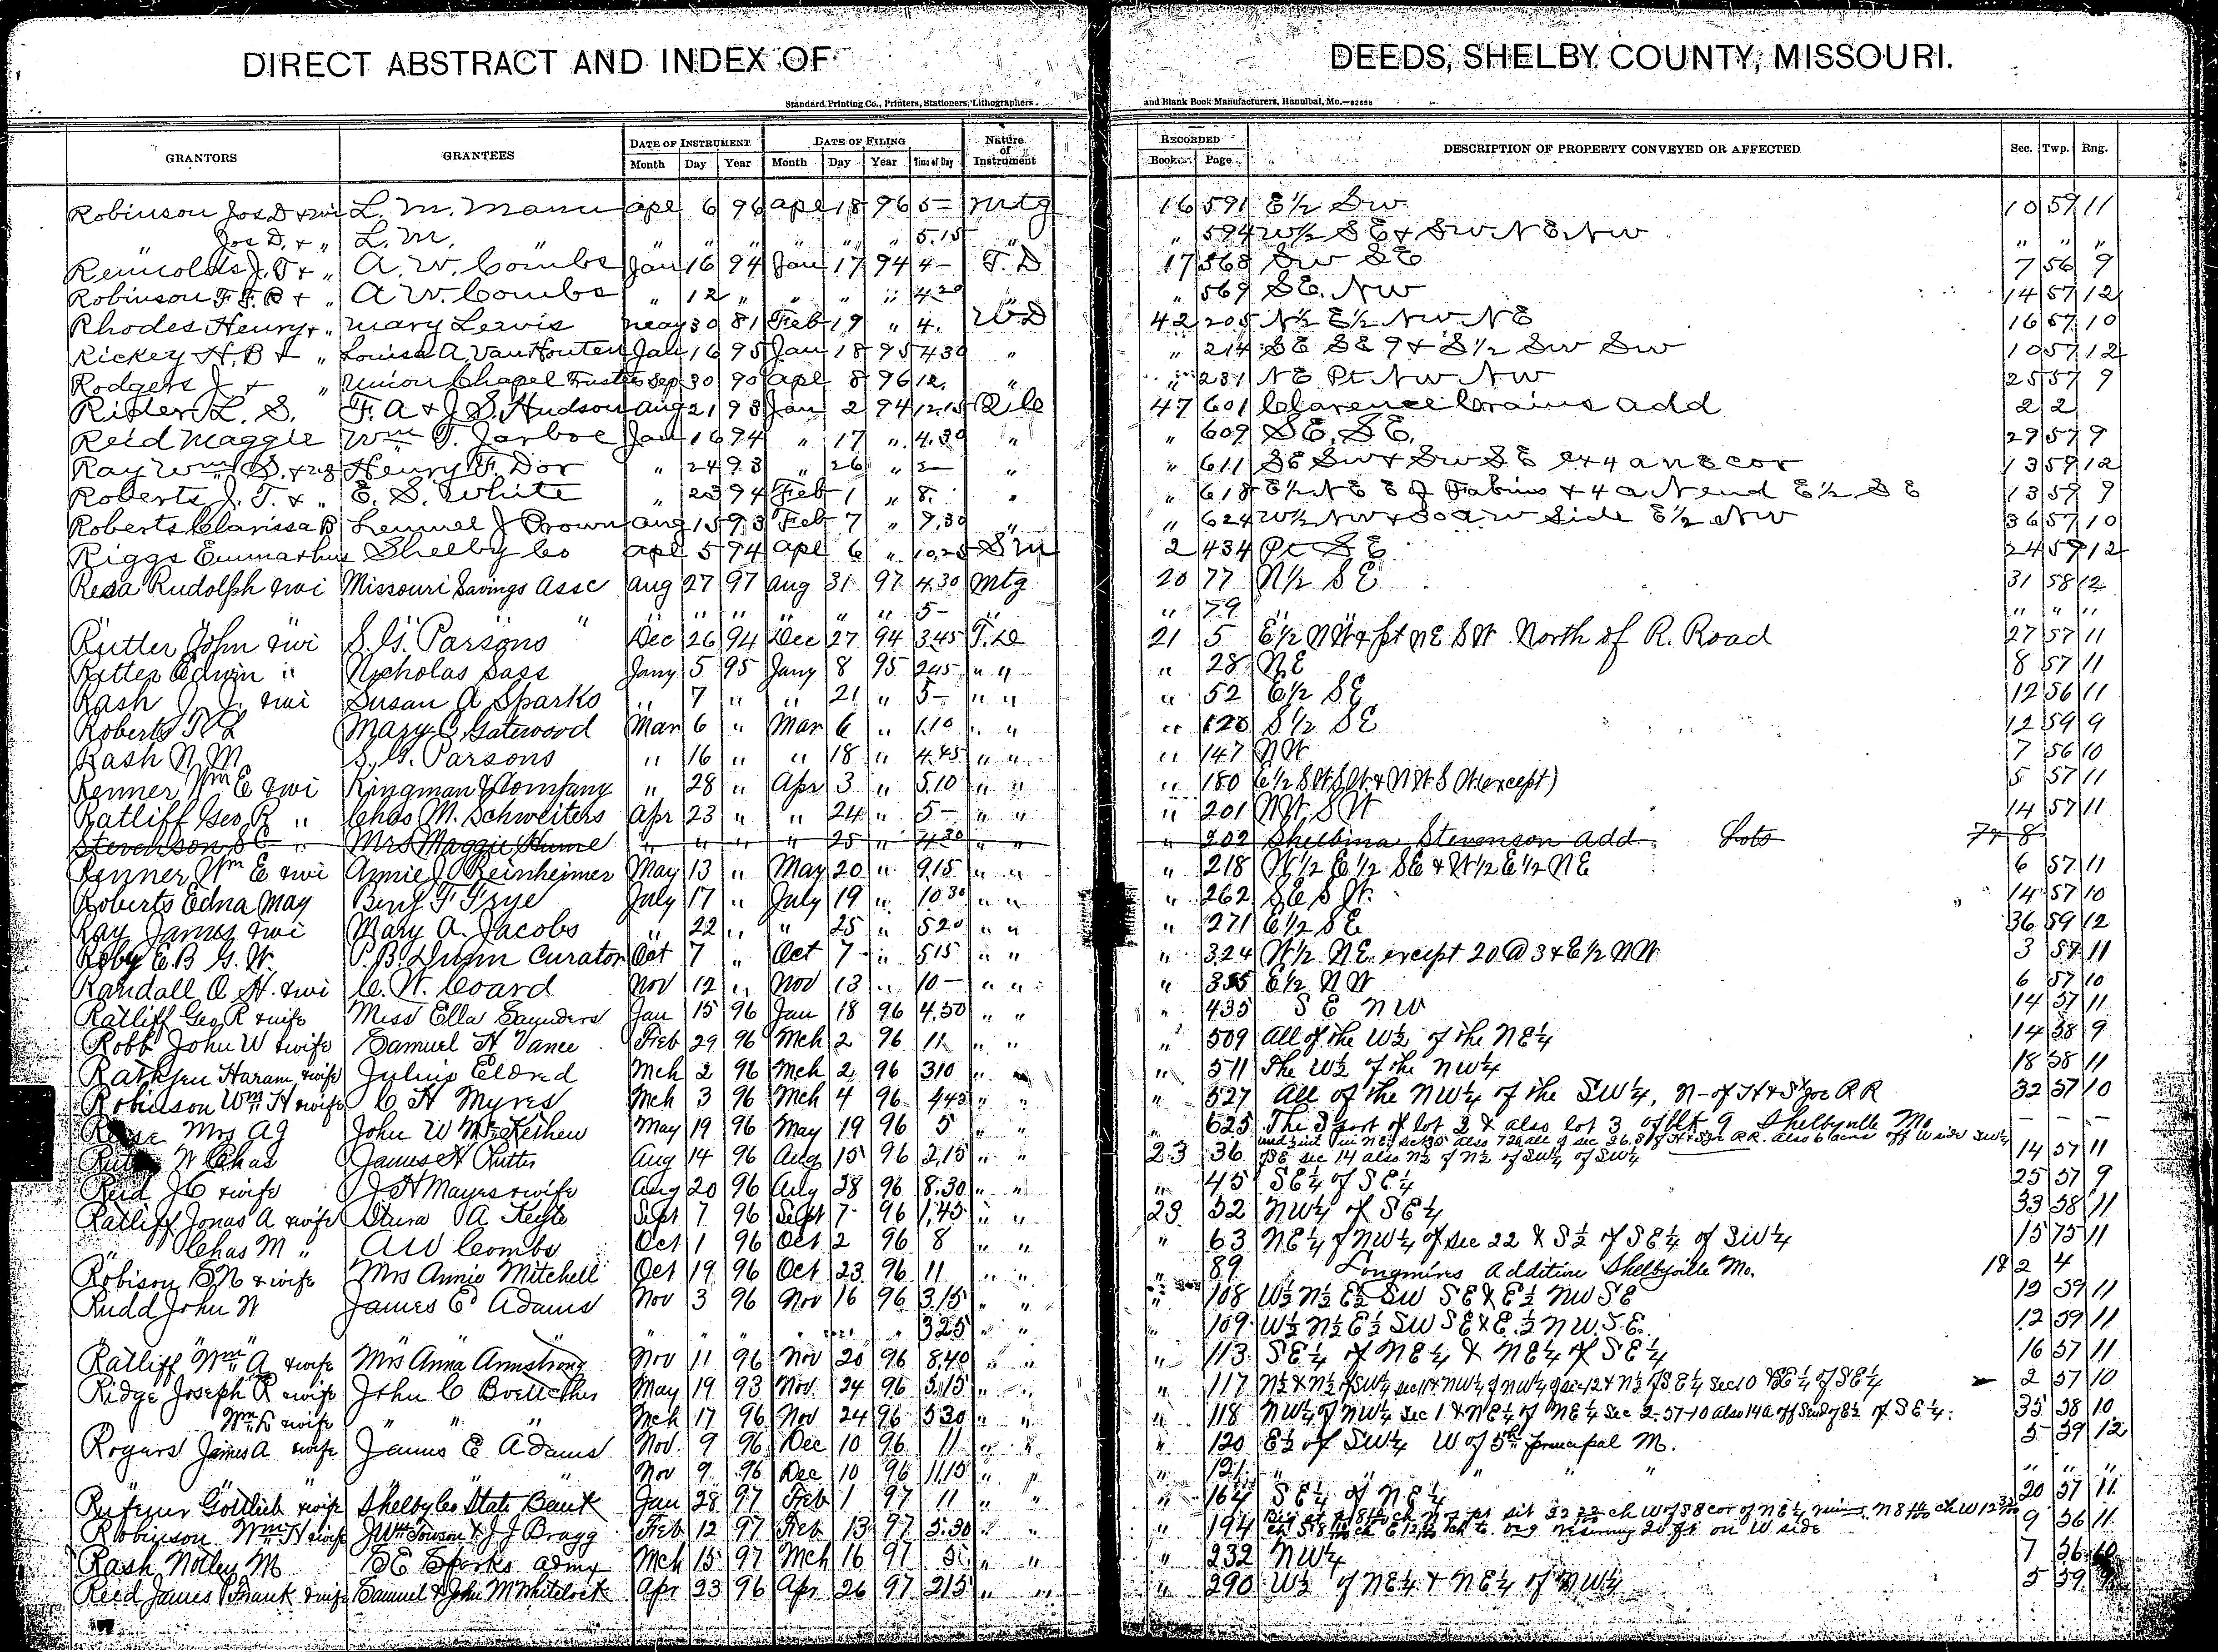 DIRECT ABSTRACT AND INDEX OF DEEDS, SHELBY COUNTY, MISSOURI.
Standard Printing Co., Printers, Stationers, Lithographers and Blank Book Manufacturers, Hannibal, Mo.
GRANTORS GRANTEES DATE OF INSTRUMENT DATE OF FILING Nature of Instrument RECORDED DESCRIPTION OF PROPERTY CONVEYED OR AFFECTED Sec. Twp. Rng.
Month Day Year Month Day Year Time of Day Book Page
Robinson Jos D & wi L. M. Mann apl 6 96 apl 18 96 5— Mtg 16 591 E½ SW 10 59 11
" Jos D. & " L. M. " " " " " " " 5.15 " " 594 W½ SE & SW NE NW " " "
J. T & " A. W. Combs Jan 16 94 Jan 17 94 4— T. D 17 568 SW SE 7 56 9
Robinson F. F. B & " A W. Combs " 12 " " " " 4.20 " 569 SE. NW 14 57 12
Rhodes Henry & " Mary Lewis May 30 81 Feb 19 " 4. WD 42 205 N½ E½ NW NE 16 57 10
Rickey H. B & " Louisa A. VanHouten Jan 16 95 Jan 18 95 4 30 " " 214 SE SE 9 & S½ SW SW 10 57 12
Rodgers J & " Union Chapel Trustees Sep 30 90 apl 8 96 12. " " 231 NE Pt NW NW 25 57 9
L. S. F. A & J. S. Hudson Aug 21 93 Jan 2 94 12.15 Q C 47 601 Clarence Crains add 2 2
Reid Maggie Wm T. Jarboe Jan 16 94 " 17 " 4.30 " " 609 SE. SE. 29 57 9
Ray Wm S. & Henry F. Dor " 24 93 " 26 " " " 611 SE SW & SW SE ex 4 a NE cor 13 59 12
Roberts J. T. & " E. S. White " 23 94 Feb 1 " 8. " " 618 E½ NE E of Fabius & 4 a. N end E½ SE 13 59 9
Roberts Clarissa B Lemuel J Brown Aug 15 93 Feb 7 " 9.30 " " 624 W½ NW & 30 a W side E½ NW 36 57 10
Riggs Emma & hus Shelby Co apl 5 94 apl 6 " 10.25 2 434 Pt SE 24 59 12
Rudolph & wi Missouri Savings Assc Aug 27 97 Aug 31 97 4.30 Mtg 20 77 N½ SE 31 58 12
" " " " " " " " 5— " " 79 " " " "
Rutter John & wi S. G. Parsons Dec 26 94 Dec 27 94 3.45 T. D 21 5 E½ NW & pt NE SW North of R. Road 27 57 11
Ritter Edwin " Nicholas Sass Jany 5 95 Jany 8 95 2.45 " " " 28 NE 8 57 11
Rash J. J. & wi Susan A Sparks " 7 " " 21 " 5— " " " 52 E½ SE 12 56 11
Roberts Mary C. Gatewood Mar 6 " Mar 6 " 1.10 " " " 120 S½ SE 12 59 9
Rash N. M. S. G. Parsons " 16 " " 18 " 4.45 " " " 147 NW 7 56 10
Renner Wm E & wi Kingman & Company " 28 " Apr 3 " 5.10 " " " 180 E½ SW SW & NW SW (except) 5 57 11
Ratliff Geo. R " Chas M. Schweiters Apr 23 " " 24 " 5— " " " 201 NW, SW 14 57 11
Stevenson S E " Mrs Maggie Hume " " " " 25 " 4.30 " " " 202 Shelbina Stevenson Add. Lots 7 & 8
Renner Wm E & wi Annie J Reinheimer May 13 " May 20 " 9.15 " " " 218 W½ E½ SE & W½ E½ NE 6 57 11
Roberts Edna May Benj F Frye July 17 " July 19 " 10 30 " " " 262 SE SW. 14 57 10
Ray James & wi Mary A. Jacobs " 22 " " 25 " 5 20 " " " 271 E½ SE 36 59 12
Roby E. B G. W. P. B. Dunn Curator Oct 7 " Oct 7 " 5 15 " " " 324 W½ NE except 20 @ 3 & E½ NW 3 57 11
Randall A. H. & wi C. W. Coard Nov 12 " Nov 13 " 10— " " " 355 E½ NW 6 57 10
Ratliff Geo R & wife Miss Ella Saunders Jan 15 96 Jan 18 96 4.50 " " " 435 SE NW 14 57 11
Robb John W & wife Samuel H Vance Feb 29 96 Mch 2 96 11 " " " 509 All of the W½ of the NE¼ 14 58 9
Haram & wife Julius Eldred Mch 2 96 Mch 2 96 310 " " " 511 The W½ of the NW¼ 18 58 11
Robinson Wm H & wife C H Myres Mch 3 96 Mch 4 96 4 45 " " " 527 All of the NW¼ of the SW¼, N-of H & St Joe RR 32 57 10
Mrs A J John W McKethew May 19 96 May 19 96 5 " " " 625 The S part of lot 2 & also lot 3 of blk 9 Shelbyville Mo — — —
W Chas James H Rutter Aug 14 96 Aug 15 96 2,15 " " 23 36 14 57 11
sec 14 also N½ of N½ of SW¼ of SW¼
Reid J C & wife J H Mayes & wife Aug 20 96 Aug 28 96 8.30 " " " 45 SE¼ of SE¼ 25 57 9
Ratliff Jonas A & wife A Keyte Sept 7 96 Sept 7 96 1,45 " " 23 52 NW¼ of SE¼ 33 58 11
" Chas M " A W Combs Oct 1 96 Oct 2 96 8 " " " 63 NE¼ of NW¼ of sec 22 & S½ of SE¼ of SW¼ 15 75 11
Robison & wife Mrs Annie Mitchell Oct 19 96 Oct 23 96 11 " " " 89 Longmires Addition Shelbyville Mo. 18 2 4
Rudd John W James E Adams Nov 3 96 Nov 16 96 3.15 " " " 108 W½ N½ E½ SW SE & E½ NW SE 12 59 11
" " " " " 3 25 " " " 109 W½ N½ E½ SW SE & E.½ NW. S.E. 12 59 11
Ratliff Wm A & wife Mrs Anna Armstrong Nov 11 96 Nov 20 96 8.40 " " " 113 SE¼ of NE¼ & NE¼ of SE¼ 16 57 11
Ridge Joseph R & wife John C Boettcher May 19 93 Nov. 24 96 5.15 " " " 117 2 57 10
Wm R & wife " " " Mch 17 96 Nov 24 96 5 30 " " " 118 NW¼ of NW¼ Sec 1 & NE¼ of NE¼ Sec 2-57-10 also 14 a off S end of E½ of SE¼. 35 58 10
Rogers James A & wife James E Adams Nov. 9 96 Dec 10 96 11 " " " 120 E½ of SW¼ W of 5th principal M. 5 59 12
Nov 9 96 Dec 10 96 11.15 " " " 121 " " " " " " "
Gottlieb & wife Shelby Co State Bank Jan 28 97 Feb 1 97 11 " " " 164 SE¼ of NE¼ 20 57 11
Robinson Wm H & wife & J J Bragg Feb 12 97 Feb 13 97 5.30 " " " 194 9 56 11
Rash Notley M Sparks admx Mch 15 97 Mch 16 97 " " " 232 NW¼ 7 56 10
Reed James Frank & wife Samuel & John M Whitelock Apr 23 96 Apr 26 97 2 15 " " " 290 W½ of NE¼ & NE¼ of NW¼ 5 59